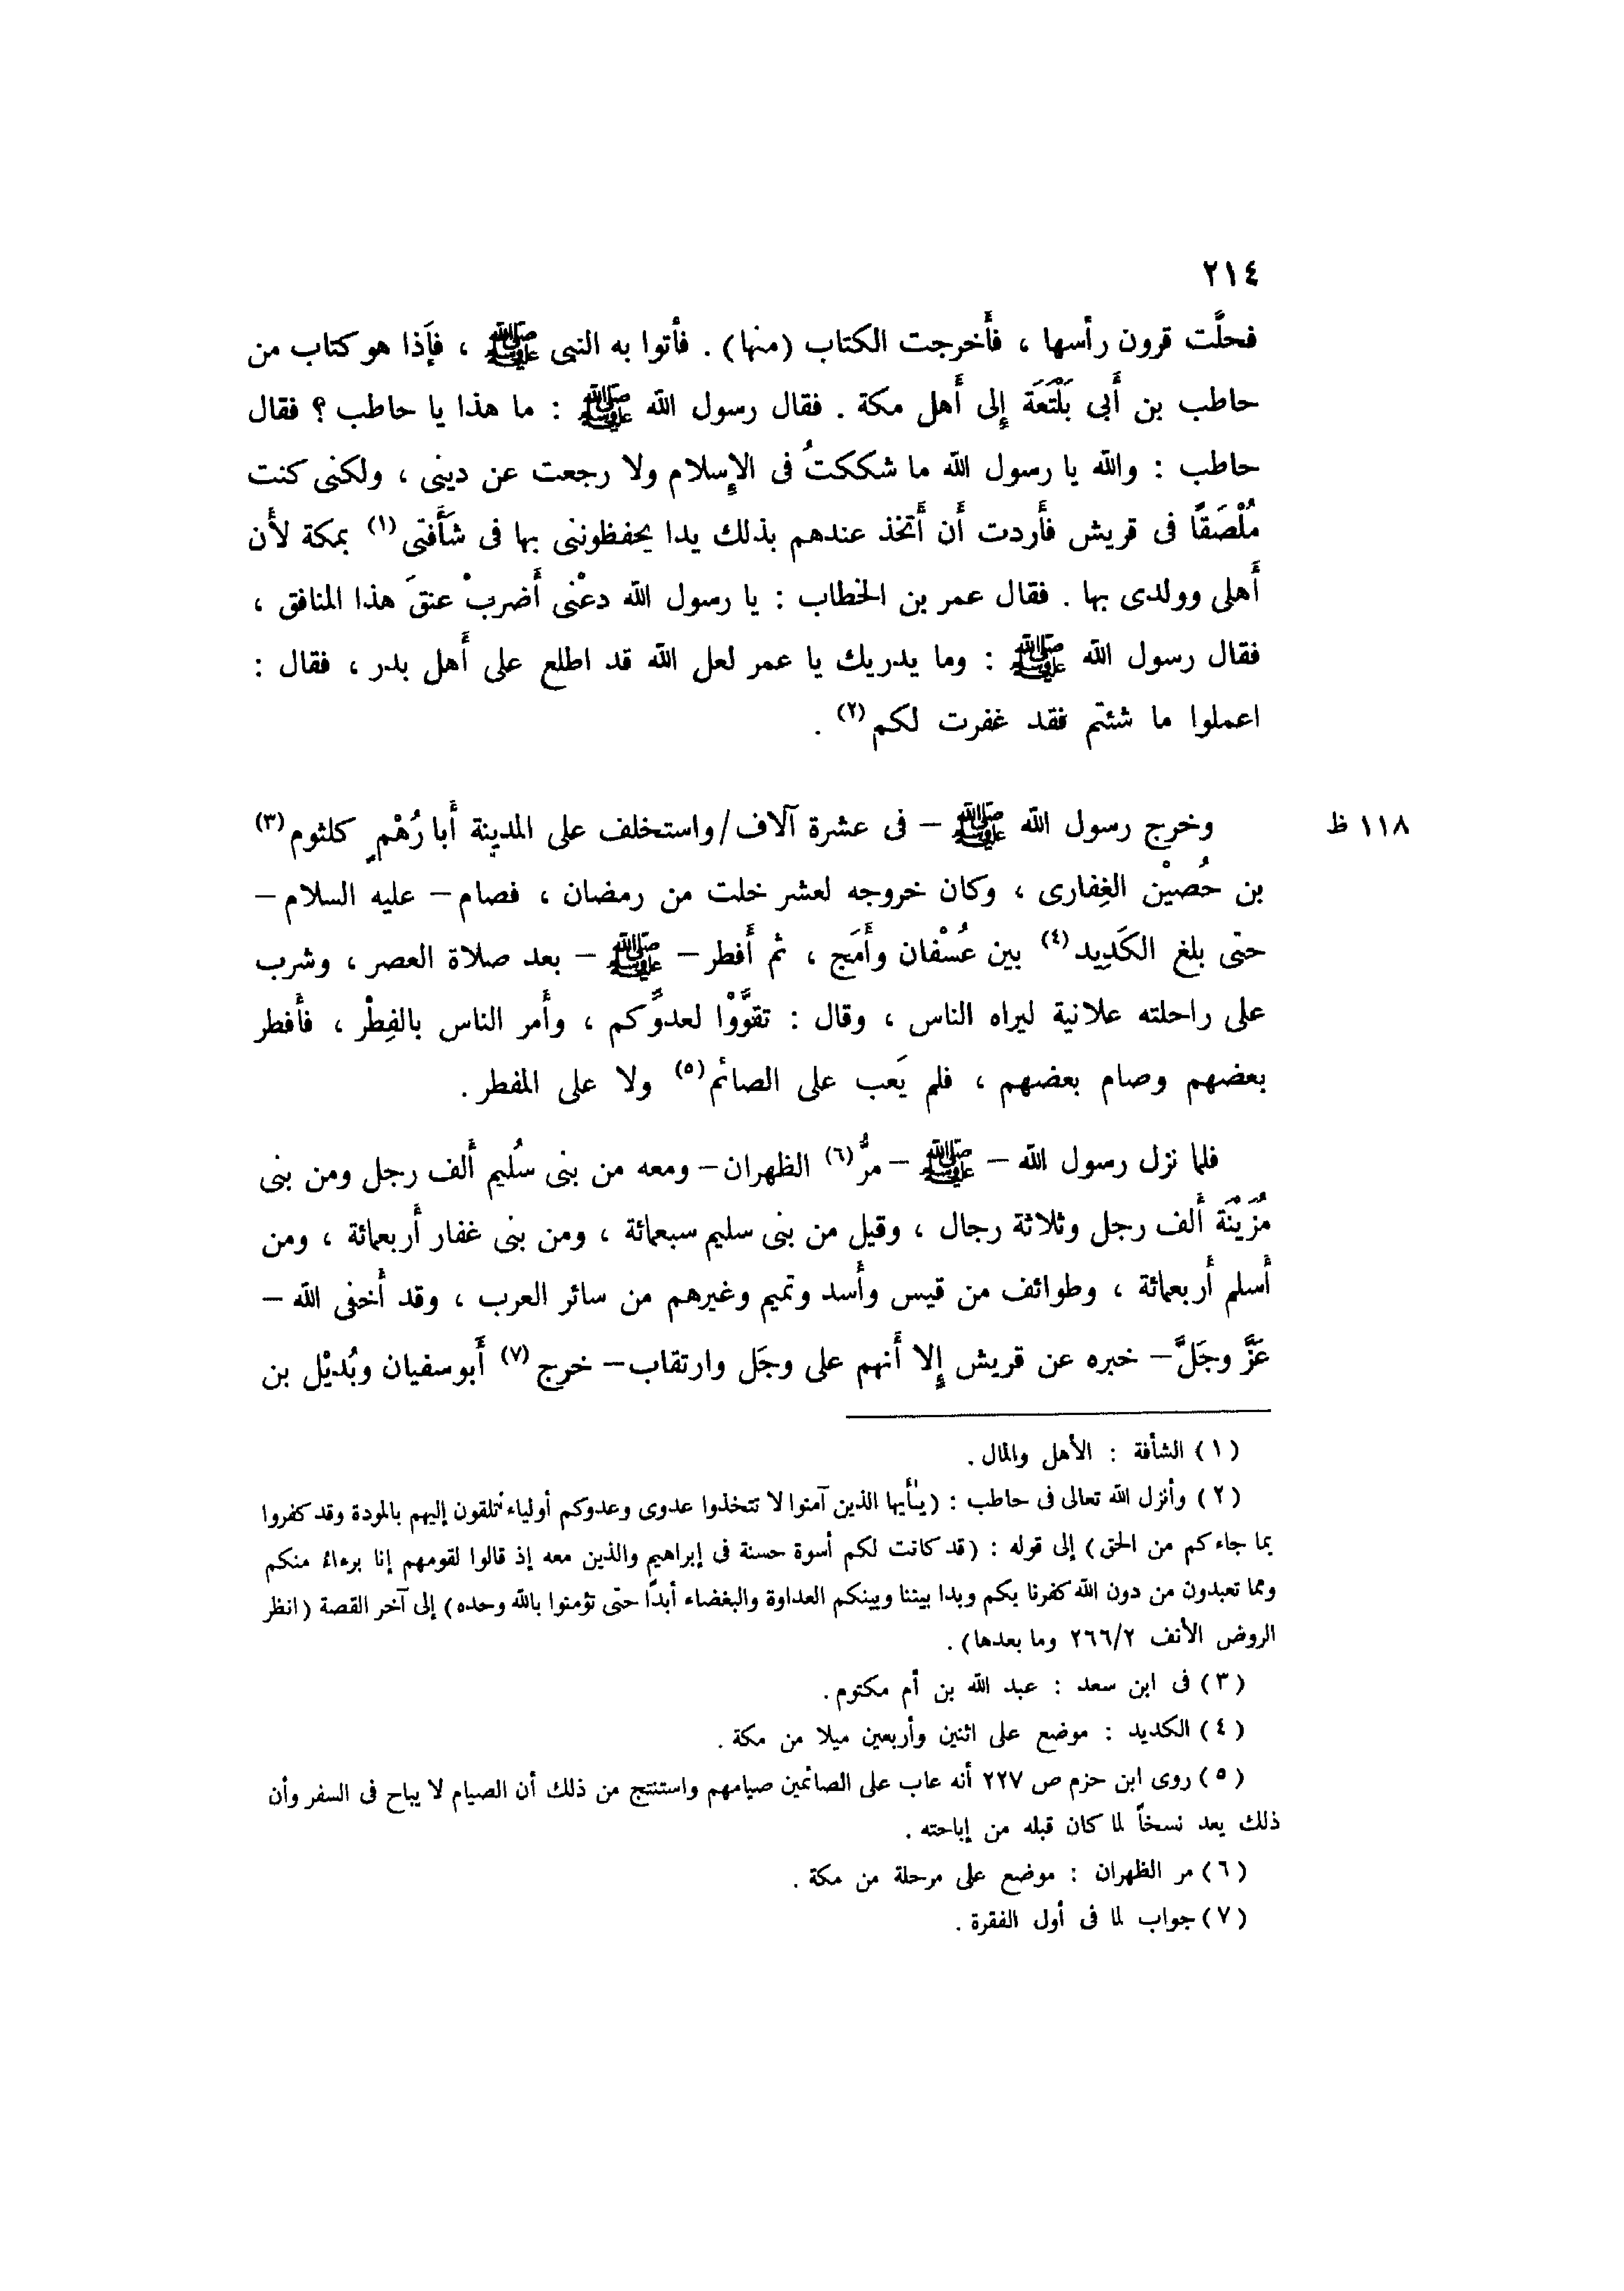 ٢١٤
فحلَّت قرون رأسها ، فأَخرجت الكتاب (منها) . فأتوا به النبى ﷺ ، فإَذا هو كتاب من
حاطب بن أَبى بَلْتَعَة إِلى أَهل مكة . فقال رسول الله ﷺ : ما هذا يا حاطب ؟ فقال
حاطب : والله يا رسول الله ما شككتُ فى الإِسلام ولا رجعت عن دينى ، ولكنى كنت
مُلْصَقًا فى قريش فأَردت أَن أَتخذ عندهم بذلك يدا يحفظوننى بها فى شَأَفتى (١) بمكة لأَن
أَهلى وولدى بها . فقال عمر بن الخطاب : يا رسول الله دعْنى أَضربْ عنقَ هذا المنافق ،
فقال رسول الله ﷺ : وما يدريك يا عمر لعل الله قد اطلع على أَهل بدر ، فقال :
اعملوا ما شئتم فقد غفرت لكم (٢) .
وخرج رسول الله ﷺ – فى عشرة آلاف/واستخلف على المدينة أَبا رُهْمٍ كلثوم (٣)
١١٨ ظ
بن حُصيْن الغِفارى ، وكان خروجه لعشر خلت من رمضان ، فصام – عليه السلام –
حتى بلغ الكَدِيد (٤) بين عُسْفان وأَمَج ، ثم أَفطر – ﷺ – بعد صلاة العصر ، وشرب
على راحلته علانية ليراه الناس ، وقال : تقوَّوْا لعدوِّكم ، وأَمر الناس بالفِطْر ، فأَفطر
بعضهم وصام بعضهم ، فلم يَعب على الصائم (٥) ولا على المفطر .
فلما نزل رسول الله – ﷺ – مرُّ (٦) الظهران – ومعه من بنى سُليم أَلف رجل ومن بنى
مُزَيْنَة أَلف رجل وثلاثة رجال ، وقيل من بنى سليم سبعمائة ، ومن بنى غفار أَربعمائة ، ومن
أَسلم أَربعمائة ، وطوائف من قيس وأَسد وتميم وغيرهم من سائر العرب ، وقد أَخفى الله –
عَزَّ وجَلَّ – خبره عن قريش إِلا أَنهم على وجَل وارتقاب – خرج (٧) أَبو سفيان وبُديْل بن
(١) الشأفة : الأهل والمال .
(٢) وأنزل الله تعالى فى حاطب : (يٰأيها الذين آمنوا لا تتخذوا عدوى وعدوكم أولياء تلقون إليهم بالمودة وقد كفروا
بما جاءكم من الحق) إلى قوله : (قد كانت لكم أسوة حسنة فى إبراهيم والذين معه إذ قالوا لقومهم إنا برءاؤ منكم
ومما تعبدون من دون الله كفرنا بكم وبدا بيننا وبينكم العداوة والبغضاء أبدًا حتى تؤمنوا بالله وحده) إلى آخر القصة (انظر
الروض الأنف ٢٦٦/٢ وما بعدها) .
(٣) فى ابن سعد : عبد الله بن أم مكتوم .
(٤) الكديد : موضع على اثنين وأربعين ميلا من مكة .
(٥) روى ابن حزم ص ٢٢٧ أنه عاب على الصائمين صيامهم واستنتج من ذلك أن الصيام لا يباح فى السفر وأن
ذلك يعد نسخاً لما كان قبله من إباحته .
(٦) مر الظهران : موضع على مرحلة من مكة .
(٧) جواب لما فى أول الفقرة .